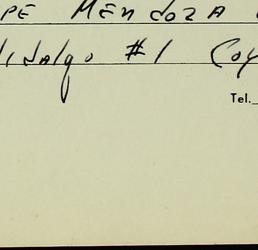 PE MENDOZA
Hidalgo #1 Coy
Tel.